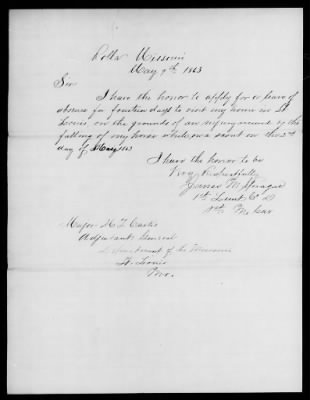 Rolla Missouri
May 9th 1863
Sir
I have the honor to apply for a leave of
absence for fourteen days to visit my home in St
Louis on the grounds of an injury received by the
falling of my horse while on a scout on the 2nd
day of May 1863
I have the honor to be
Very Respectfully
James M
1st Lieut Co D
Mo Cav
Major H Z Curtis
Adjutant General
Department of the Missouri
St Louis
Mo.